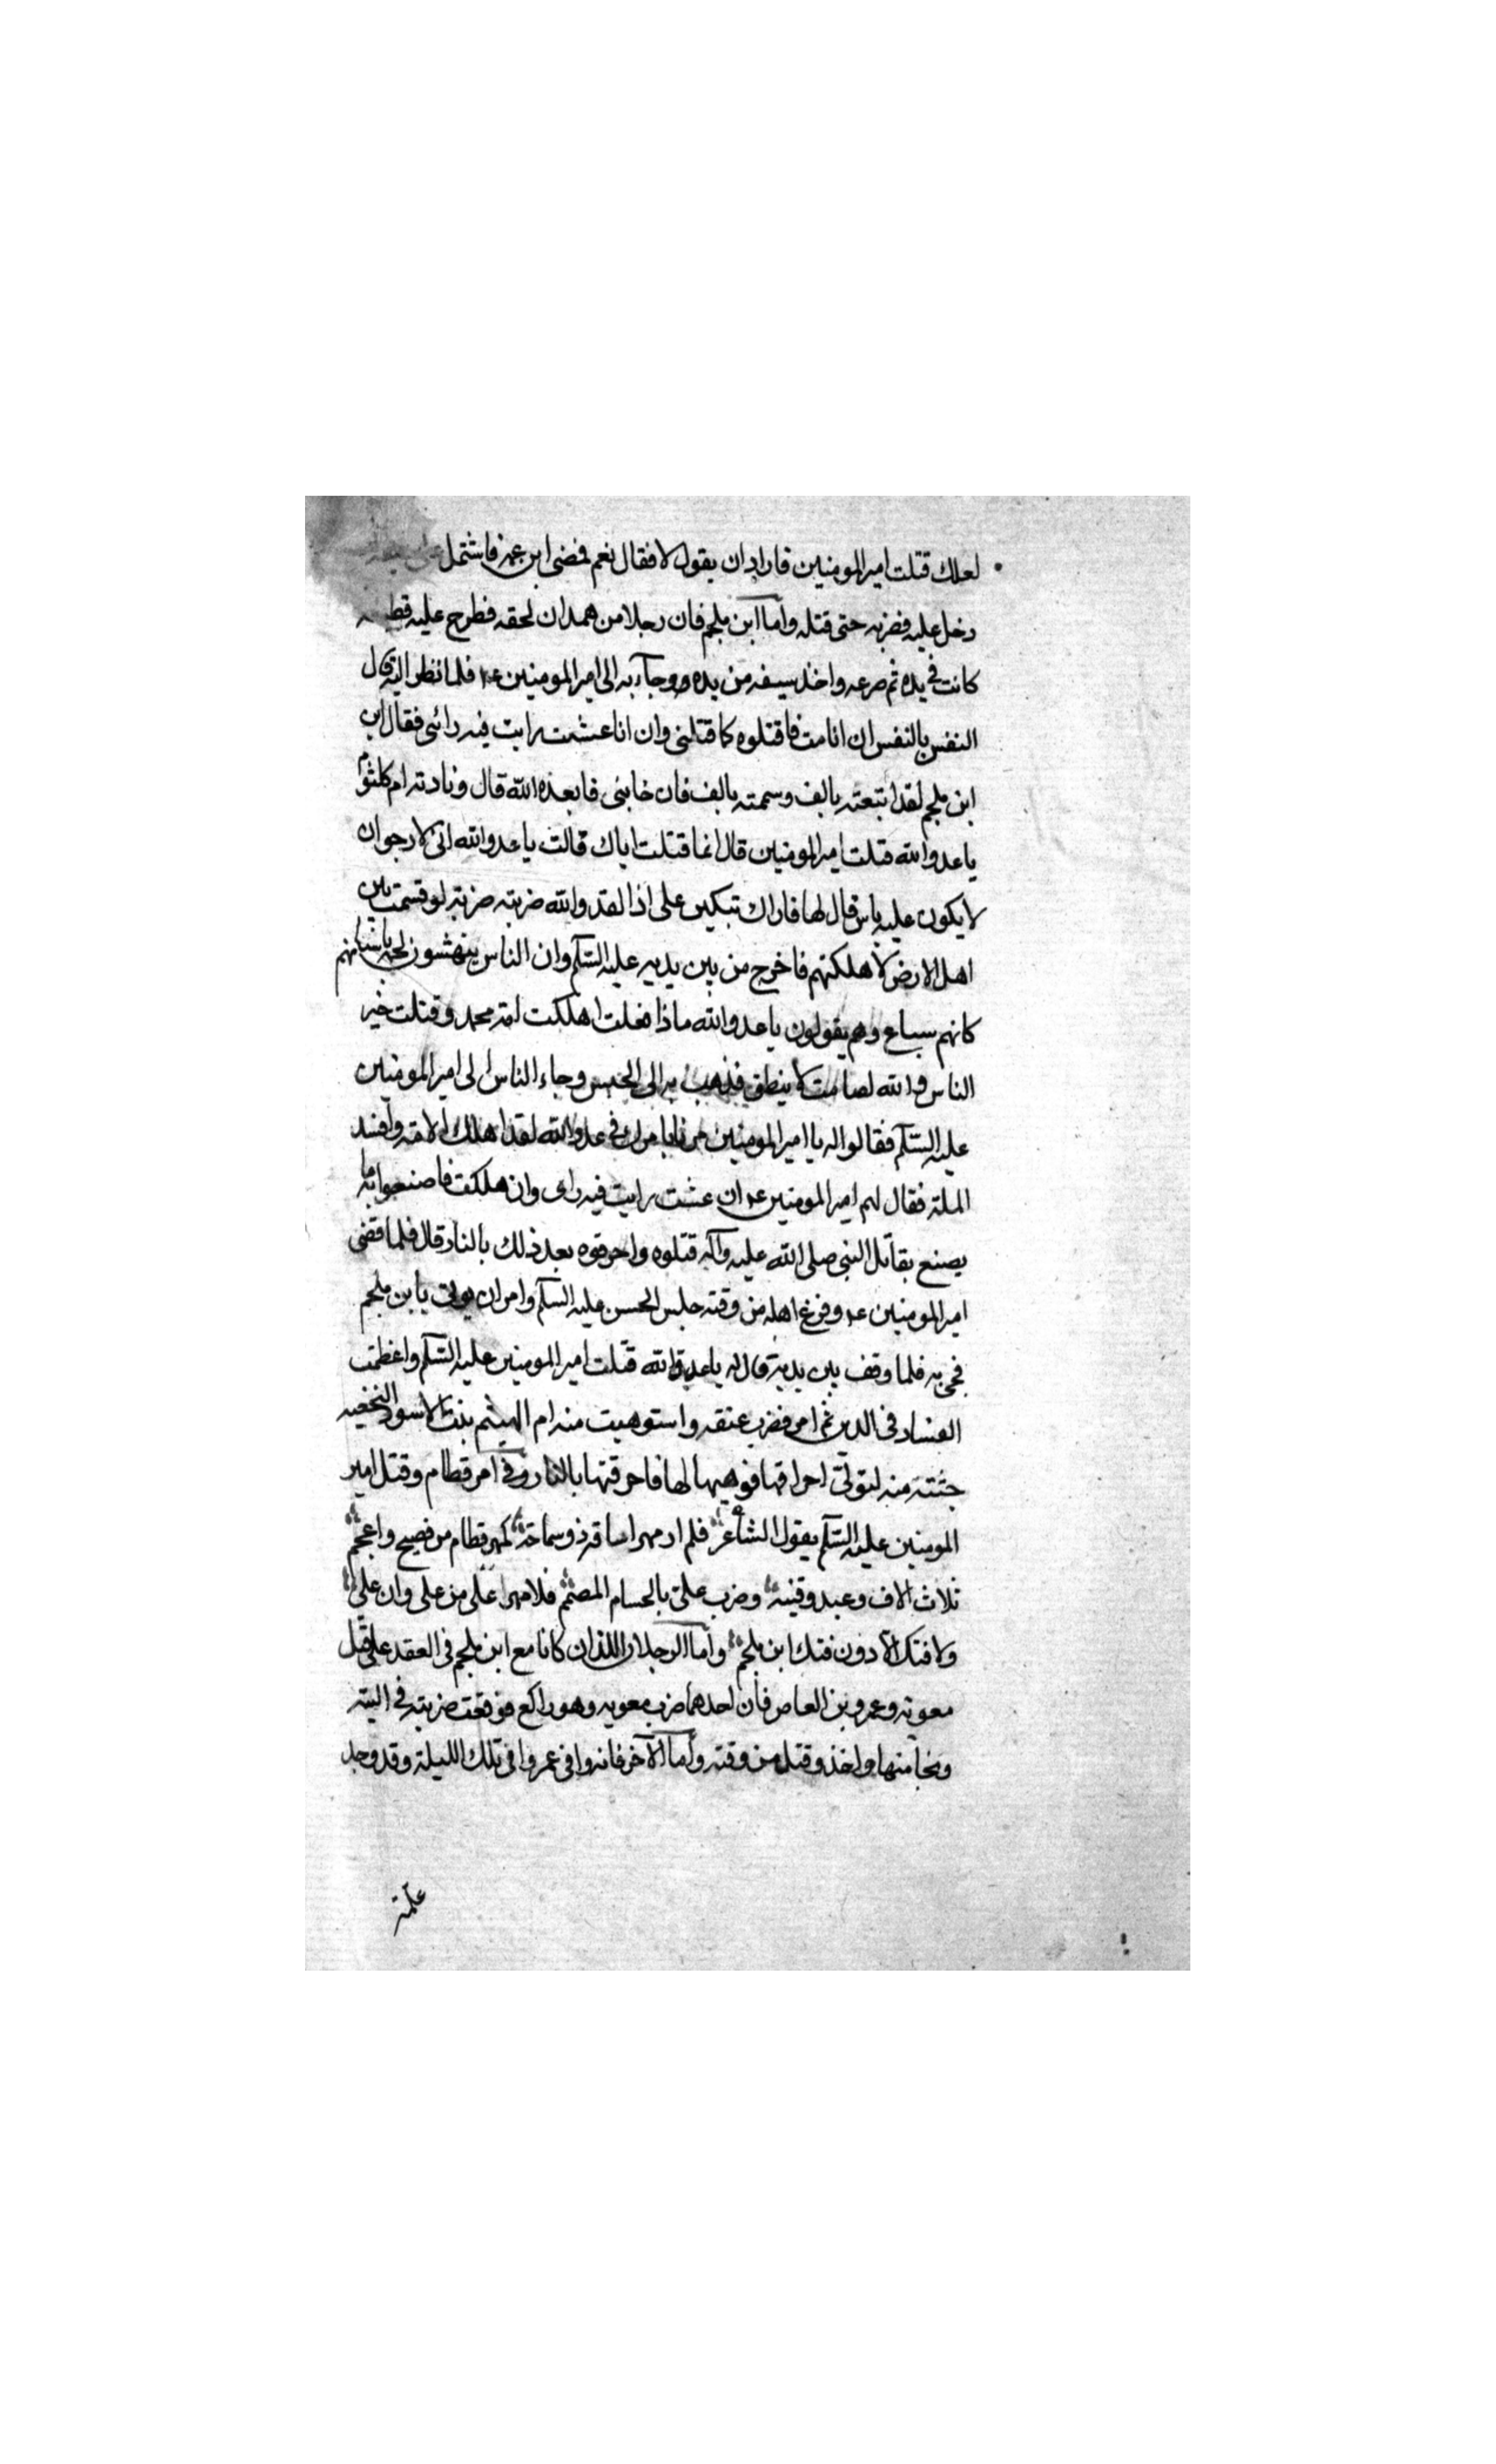 لعلك قتلت امير المومنين فاراد ان يقول لا فقال نعم فمضى ابن عمه فاشتمل على
دخل عليه فضربه حتى قتله واما ابن ملجم فان رجلا من همدان لحقه فطرح عليه
كانت في يده ثم صرعه واخذ سيفه من يده وجآء به الى امير المومنين ع م فلما نظر اليه قال
النفس بالنفس ان انا مت فاقتلوه كما قتلنى وان انا عشت رايت فيه رائى فقال ابن
ابن ملجم لقد ابتعته بالف وسممته بالف فان خاننى فابعده الله قال ونادته ام كلثوم
يا عدو الله قتلت امير المومنين قال انما قتلت اباك قالت يا عدو الله انى لارجو ان
لا يكون عليه باس قال لها فاراك تبكين على اذا لقد والله ضربته ضربة لو قسمت بين
اهل الارض لاهلكتهم فاخرج من بين يديه عليه السلم وان الناس ينهشون لحمه باسنانهم
كانهم سباع وهم يقولون يا عدو الله ماذا فعلت اهلكت امة محمد وقتلت خير
الناس وانه لصامت لا ينطق فذهب به الى الحبس وجاء الناس الى امير المومنين
عليه السلم فقالوا له يا امير المومنين مرنا بامرك في عدو الله لقد اهلك الامة وافسد
الملة فقال لهم امير المومنين ع م ان عشت رايت فيه راى وان هلكت فاصنعوا به ما
يصنع بقاتل النبى صلى الله عليه وآله قتلوه واحرقوه بعد ذلك بالنار قال فلما قضى
امير المومنين ع م وفرغ اهله من وقته جلس الحسن عليه السلم وامر ان يوتى بابن ملجم
فجئ به فلما وقف بين يديه قال له يا عدو الله قتلت امير المومنين عليه السلم واعظمت
الفساد فى الدين ثم امر فضرب عنقه واستوهبت منه ام الهيثم بنت الاسود النخعيه
جثته منه لتولى احراقها فوهبها لها فاحرقتها بالنار وفى امر قطام وقتل امير
المومنين عليه السلم يقول الشاعر فلم ار مهرا ساقه ذو سماحة كمهر قطام من فصيح واعجم
ثلاث الاف وعبد وقينه وضرب على بالحسام المصمم فلا مهرا على من على وان على
ولا فتك الا دون فتك ابن ملجم واما الرجلان اللذان كانا مع ابن ملجم فى العقد على قتل
معويه وعمرو بن العاص فان احدهما ضرب معويه وهو راكع فوقعت ضربته في اليته
ونجا منها واخذ وقتل من وقته واما الآخر فانه وافى عمروا فى تلك الليلة وقد وجد
علة